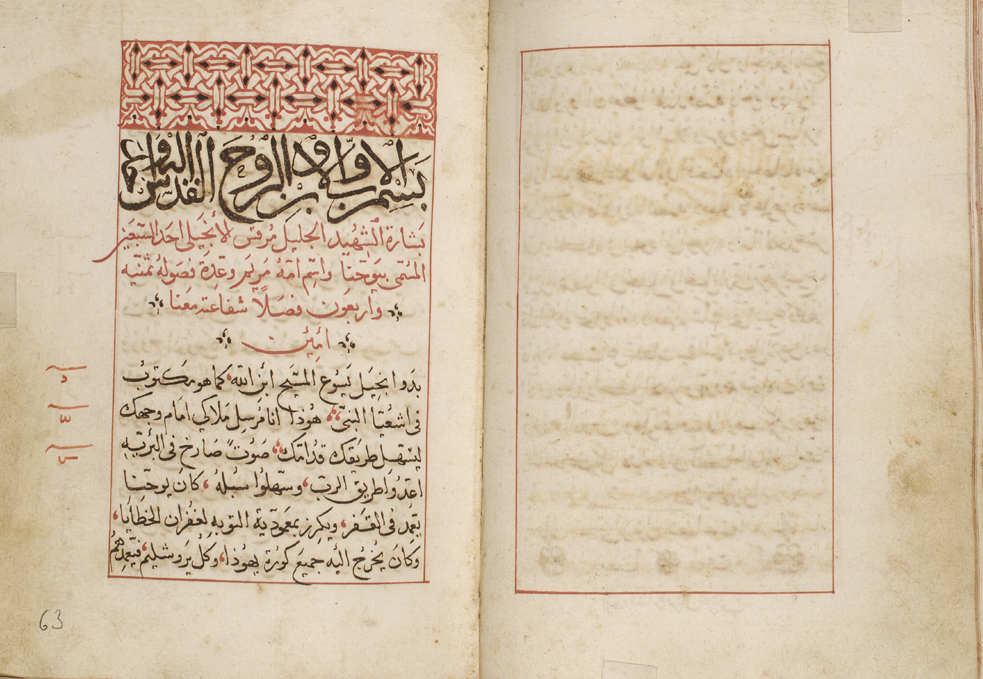 بسم الاب والابن والروح القدس الاله الواحد
بشارة الشهيد الجليل مرقس الانجيلى احد السبعين
المسمى بيوحنا واسم امه مريم وعدة فصوله ثمنيه
واربعون فصلاً شفاعته معنا
امين
بدو انجيل يسوع المسيح ابن الله كما هو مكتوب
فى اشعيا النبى هوذا انا مرسل ملاكي امام وجهك
ليسهل طريقك قدامك صوت صارخ فى البريه
اعدوا طريق الرب وسهلوا سبله كان يوحنا
يعمد فى القفر ويكرز بمعمودية التوبه لغفران الخطايا
وكان يخرج اليه جميع كورة يهوذا وكل يروشليم فيعمدهم
63